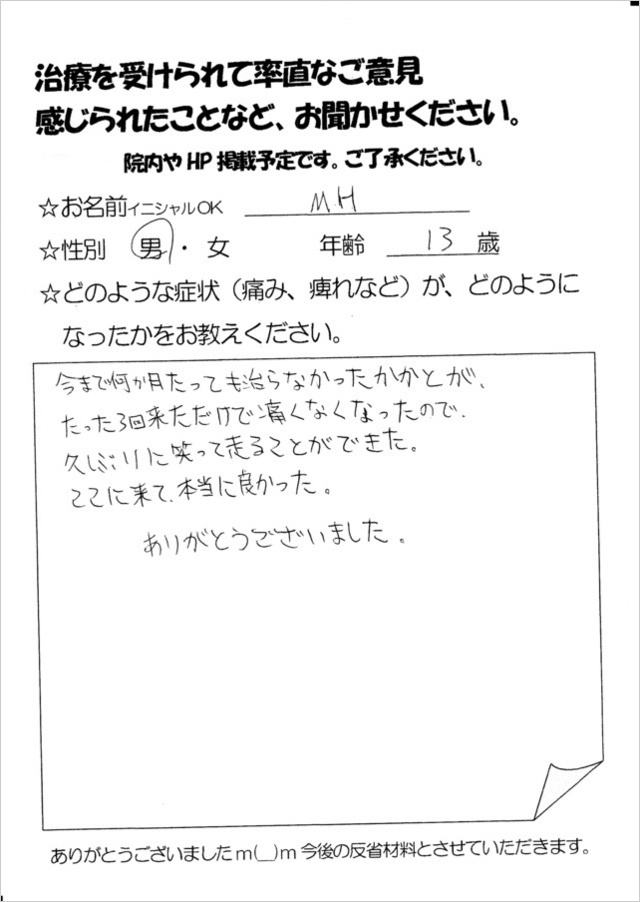 治療を受けられて率直なご意見
感じられたことなど、お聞かせください。
院内やHP掲載予定です。ご了承ください。
☆お名前イニシャルOK M.H
☆性別 男・女 年齢 13歳
☆どのような症状（痛み、痺れなど）が、どのように
なったかをお教えください。
今まで何か月たっても治らなかったかかとが、
たった3回来ただけで痛くなくなったので、
久しぶりに笑って走ることができた。
ここに来て、本当に良かった。
ありがとうございました。
ありがとうございましたm(__)m今後の反省材料とさせていただきます。